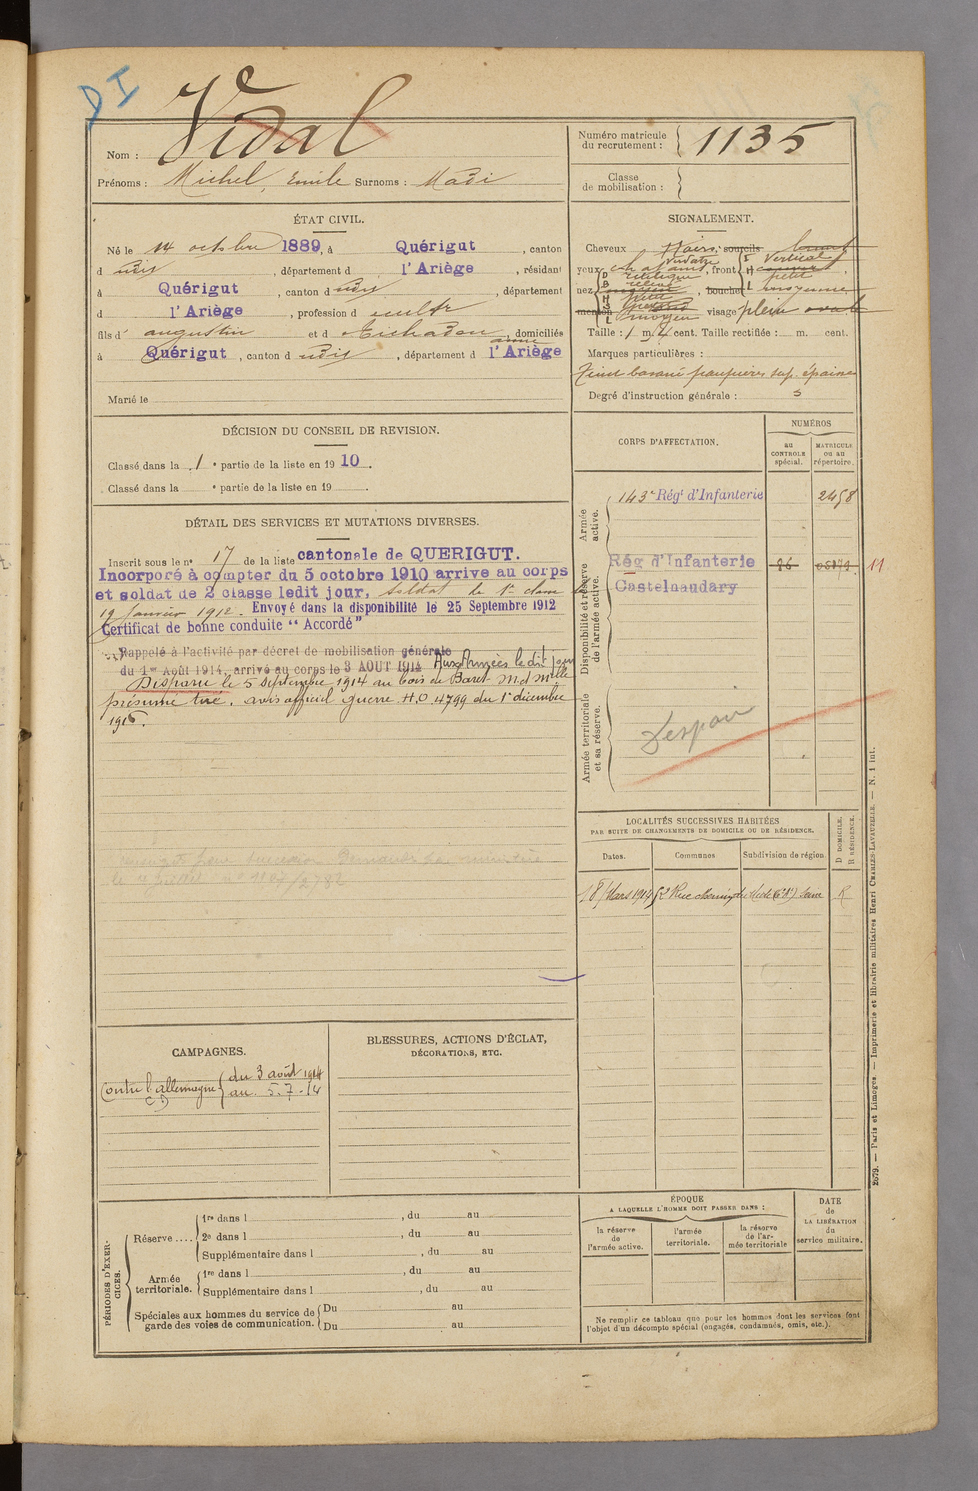 DI
Nom : Vidal
Prénoms : Michel, Emile Surnoms : Madi
Numéro matricule du recrutement : 1135
Classe de mobilisation :
ÉTAT CIVIL.
Né le 14 octobre 1889, à Quérigut, canton
d udit, département d l'Ariège, résidant
à Quérigut, canton d udit, département
d l'Ariège, profession d cultr
fils d' augustin et d , domiciliés
à Quérigut, canton d udit, département d l'Ariège
Marié le
SIGNALEMENT.
Cheveux noirs, sourcils
yeux , front Vertical
nez , bouche moyenne
menton visage plein ovale
Taille : 1 m. cent. Taille rectifiée : m. cent.
Marques particulières :
Teint basané paupières sup. épaisses
Degré d'instruction générale : 3
DÉCISION DU CONSEIL DE REVISION.
Classé dans la 1e partie de la liste en 1910.
Classé dans la e partie de la liste en 19
DÉTAIL DES SERVICES ET MUTATIONS DIVERSES.
Inscrit sous le no 17 de la liste cantonale de QUERIGUT.
Incorporé à compter du 5 octobre 1910 arrive au corps
et soldat de 2 classe ledit jour, soldat de 1re classe le
19 Janvier 1912. Envoyé dans la disponibilité le 25 Septembre 1912
Certificat de bonne conduite "Accordé"
Rappelé à l'activité par décret de mobilisation générale
du 1er Août 1914, arrivé au corps le 3 AOUT 1914 Aux Armées le dit jour
Disparu le 5 septembre 1914 au bois de Baret Md Mlle
présumé tué. avis officiel guerre H.O 4799 du 1er décembre
1916.
CORPS D'AFFECTATION.
NUMÉROS
au CONTROLE spécial.
MATRICULE ou au répertoire.
Armée active.
143e Régt d'Infanterie 2458
Disponibilité et réserve de l'armée active.
Rég d'Infanterie
Castelnaudary
11
Armée territoriale et sa réserve.
LOCALITÉS SUCCESSIVES HABITÉES
PAR SUITE DE CHANGEMENTS DE DOMICILE OU DE RÉSIDENCE.
Dates. Communes Subdivision de région. D DOMICILE. R RÉSIDENCE.
18 Mars 1914 Seine R
CAMPAGNES.
Contre l'allemagne du 3 août 1914
CD au 5.7-14
BLESSURES, ACTIONS D'ÉCLAT,
DÉCORATIONS, ETC.
PÉRIODES D'EXERCICES.
Réserve .... 1re dans l , du au
2e dans l , du au
Supplémentaire dans l , du au
Armée territoriale. 1re dans l , du au
Supplémentaire dans l , du au
Spéciales aux hommes du service de garde des voies de communication. Du au
Du au
ÉPOQUE
A LAQUELLE L'HOMME DOIT PASSER DANS :
la réserve de l'armée active.
l'armée territoriale.
la réserve de l'armée territoriale
DATE de LA LIBÉRATION du service militaire.
Ne remplir ce tableau que pour les hommes dont les services font
l'objet d'un décompte spécial (engagés, condamnés, omis, etc.).
2679. — Paris et Limoges. — Imprimerie et librairie militaires Henri CHARLES-LAVAUZELLE. — N. 1 int.